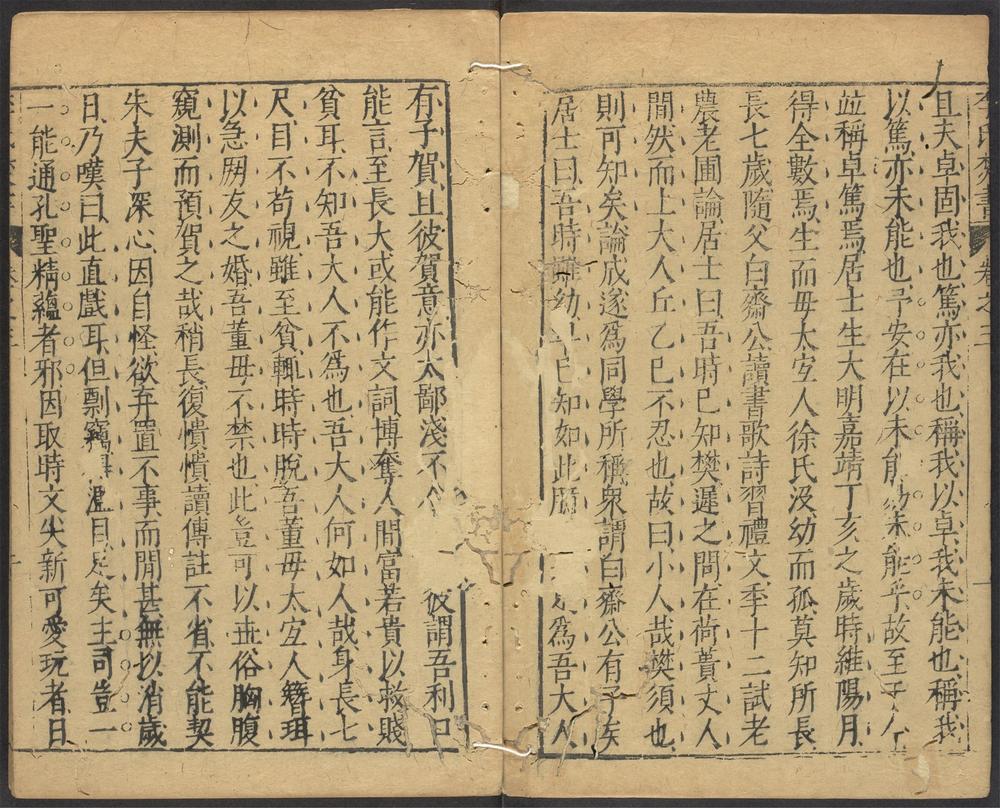 李氏焚書 卷之三
且夫卓固我也篤亦我也稱我以卓我未能也稱我
以篤亦未能也予安在以未能易未能乎故至于今
並稱卓篤焉居士生大明嘉靖丁亥之歲時維陽月
得全數焉生而毋太宜人徐氏没幼而孤莫知所長
長七歲隨父白齋公讀書歌詩習禮文季十二試老
農老圃論居士曰吾時巳知樊遲之問在荷蕢丈人
間然而上大人丘乙巳不忍也故曰小人哉樊須也
則可知矣論成遂爲同學所稱衆謂白齋公有子矣
居士曰吾時雖幼早巳知如此臆 爲吾大人
有子賀且彼賀意亦太鄙淺不 彼謂吾利口
能言至長大或能作文詞博奪人間富若貴以救賤
貧耳不知吾大人不爲也吾大人何如人哉身長七
尺目不苟視雖至貧輒時時脫吾董毋太宜人簪珥
以急朋友之婚吾董毋不禁也此豈可以世俗胸腹
窺測而預賀之哉稍長復憒憒讀傳註不省不能契
朱夫子深心因自怪欲弃置不事而閒甚無以消歲
日乃嘆曰此直戲耳但剽竊 濫目足矣主司豈一
一能通孔聖精蘊者邪因取時文尖新可愛玩者日